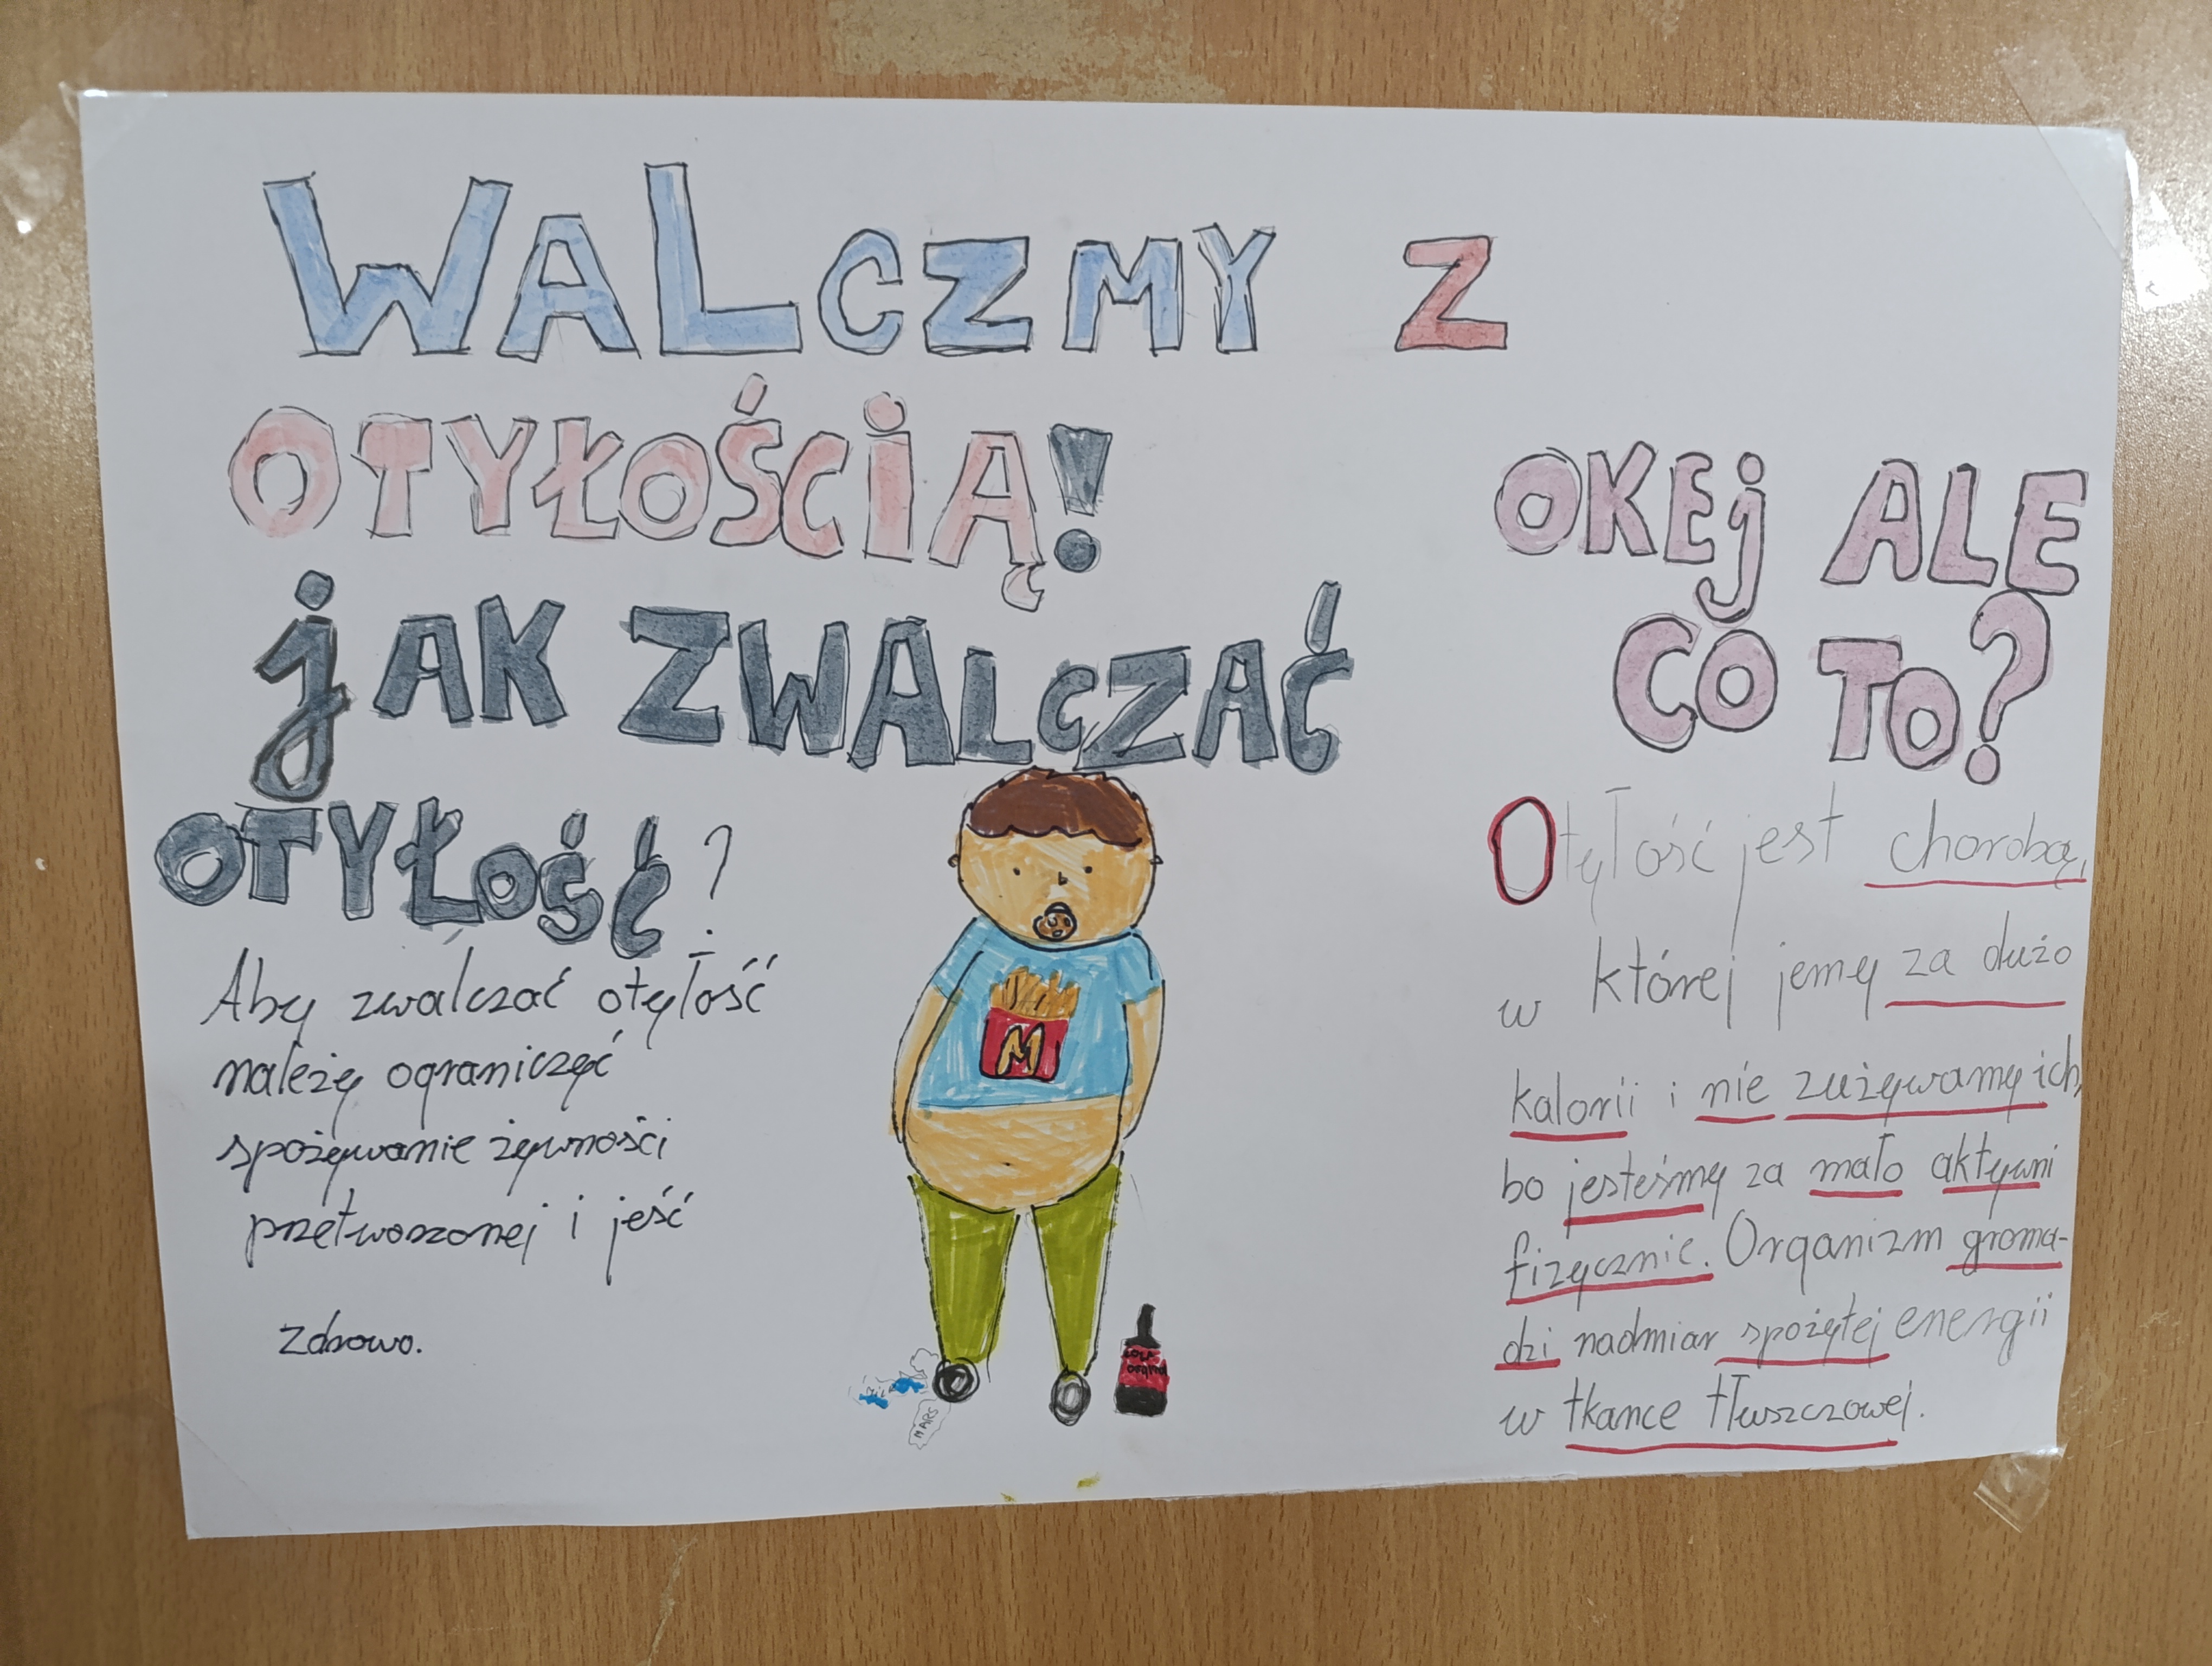 WALCZMY Z
OTYŁOŚCIĄ!
jAK ZWALCZAĆ
OTYŁOŚĆ?
Aby zwalczać otyłość
należy ograniczyć
spożywanie żywności
przetworzonej i jeść
zdrowo.
M
MARS
COLA
OKEj ALE
CO TO?
Otyłość jest chorobą,
w której jemy za dużo
kalorii i nie zużywamy ich,
bo jesteśmy za mało aktywni
fizycznie. Organizm groma-
dzi nadmiar spożytej energii
w tkance tłuszczowej.